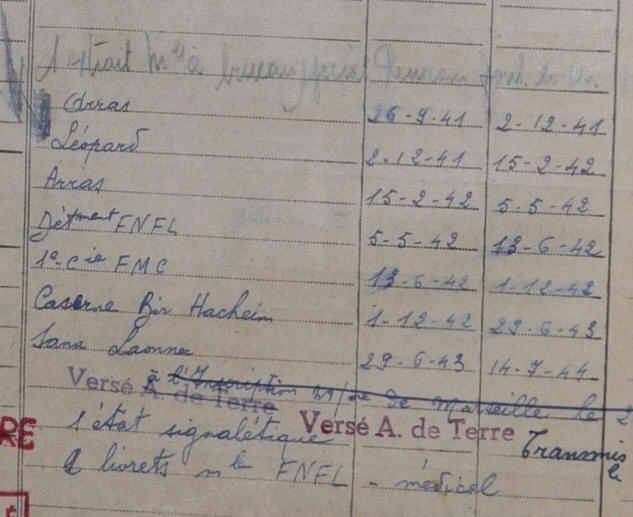 1 extrait mle à bureau
Arras 26-9-41 2-12-41
Léopard 2-12-41 15-2-42
Arras 15-2-42 5-5-42
Détment FNFL 5-5-42 13-6-42
1e Cie FMC 13-6-42 1-12-42
Caserne Bir Hacheim 1-12-42 29-6-43
Sana 29-6-43 14-7-44
à l'Inscription de Marseille le 2
Versé A. de Terre
RE 1 état signalétique Versé A. de Terre Transmis
le
2 livrets mle FNFL - médical